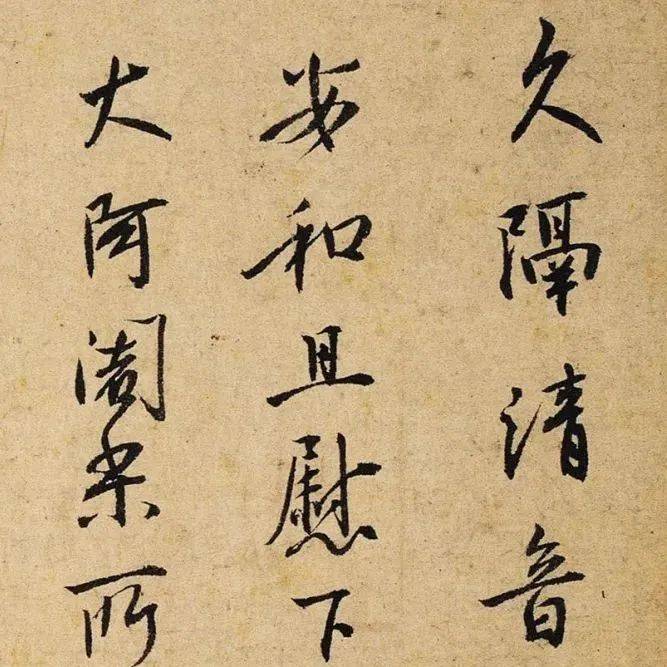 久隔清音
安和且慰下
大阿闍梨所